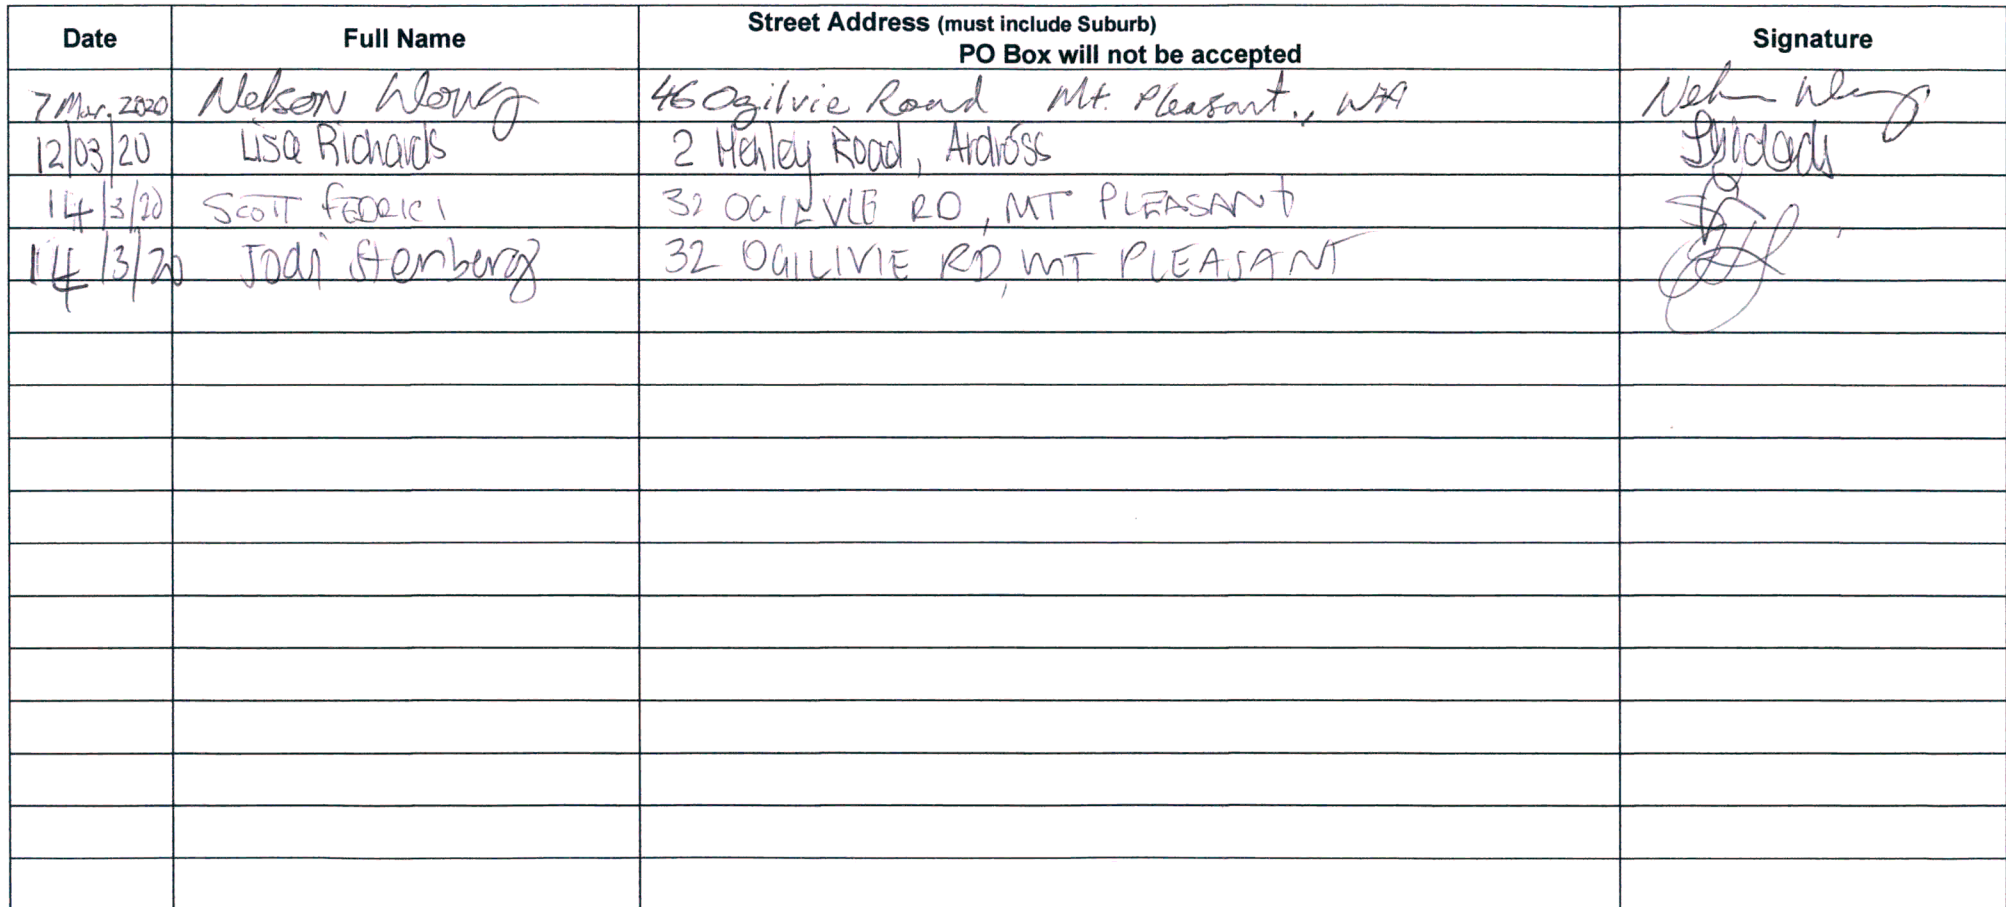 Date Full Name Street Address (must include Suburb) Signature
PO Box will not be accepted
7 Mar, 2020 Nelson Wong 46 Ogilvie Road Mt. Pleasant., WA Nelson Wong
12/03/20 Lisa Richards 2 Henley Road, Ardross
14/3/20 SCOTT FEDERICI 32 OGILVIE RD, MT PLEASANT
14/3/20 Jodi Stenberg 32 OGILIVIE RD, MT PLEASANT